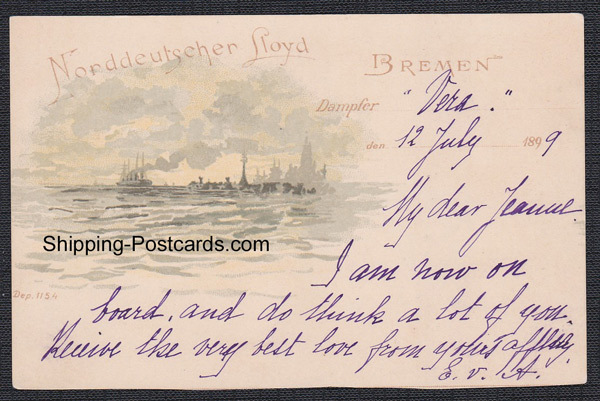 Norddeutscher Lloyd
BREMEN
Dampfer "Vera."
den 12 July 1899
My dear Jeanne.
Shipping-Postcards.com
I am now on
Dep. 1154
board, and do think a lot of you.
Receive the very best love from yours affly
E. v. A.